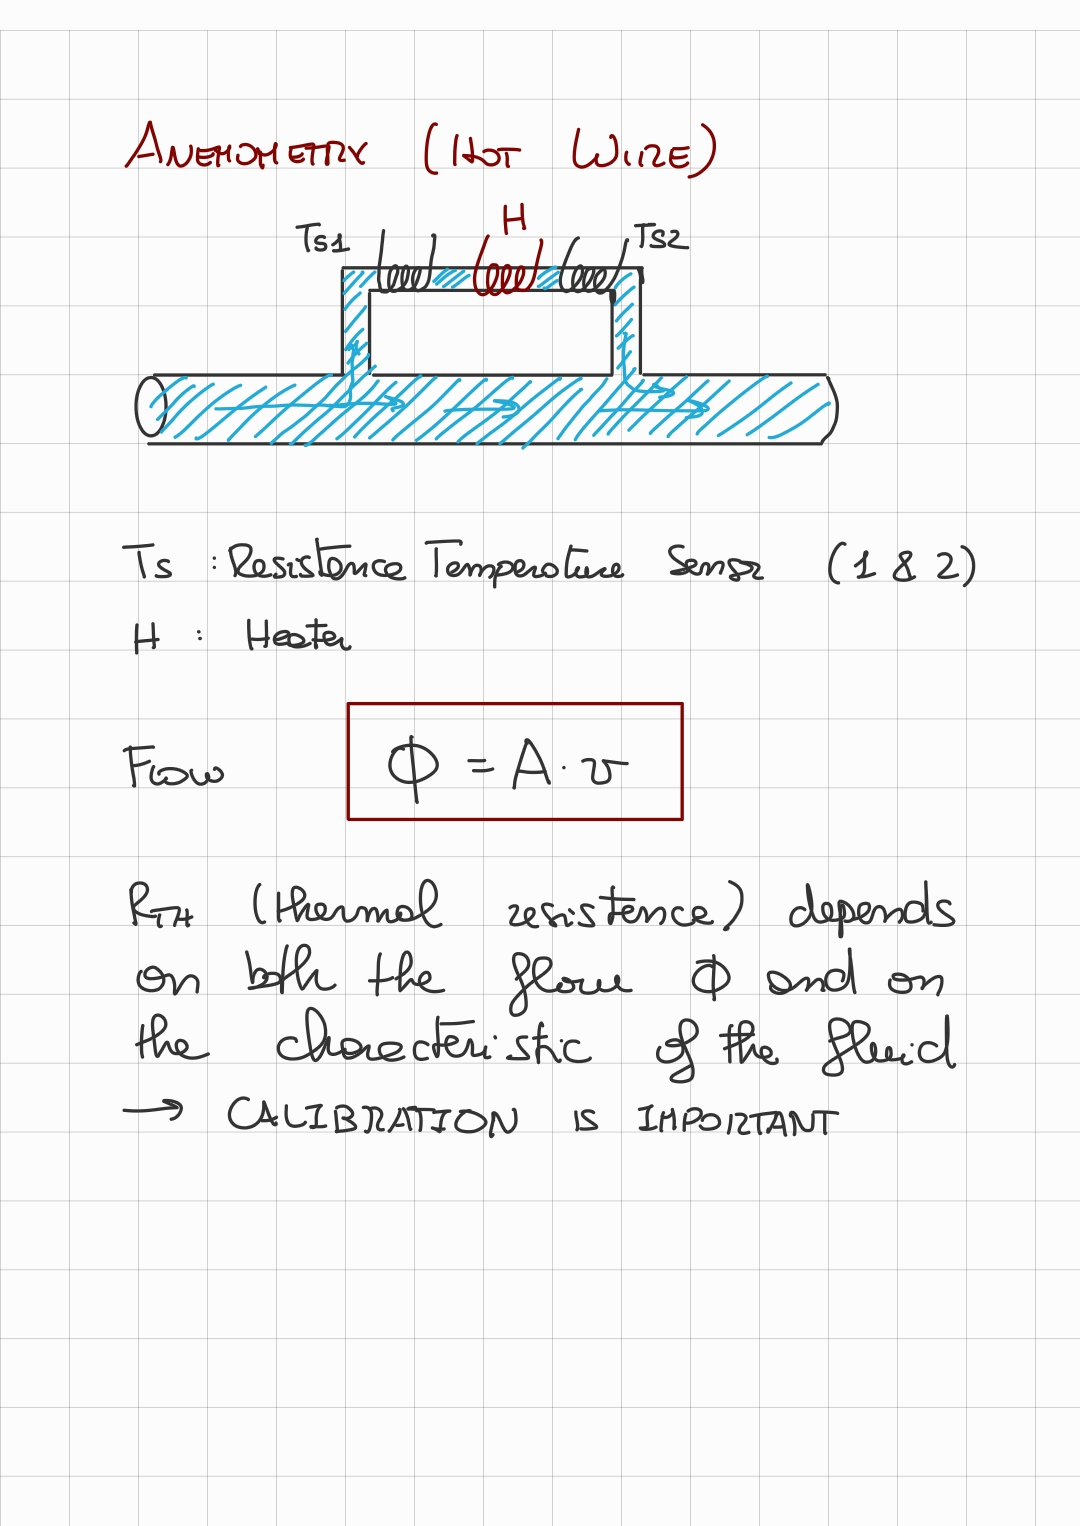 ANEMOMETRY (HOT WIRE)
H
Ts1 Ts2
Ts : Resistence Temperature Sensor (1 & 2)
H : Heater
Flow Φ = A · v
RTH (thermal resistence) depends
on both the flow Φ and on
the characteristic of the fluid
→ CALIBRATION IS IMPORTANT